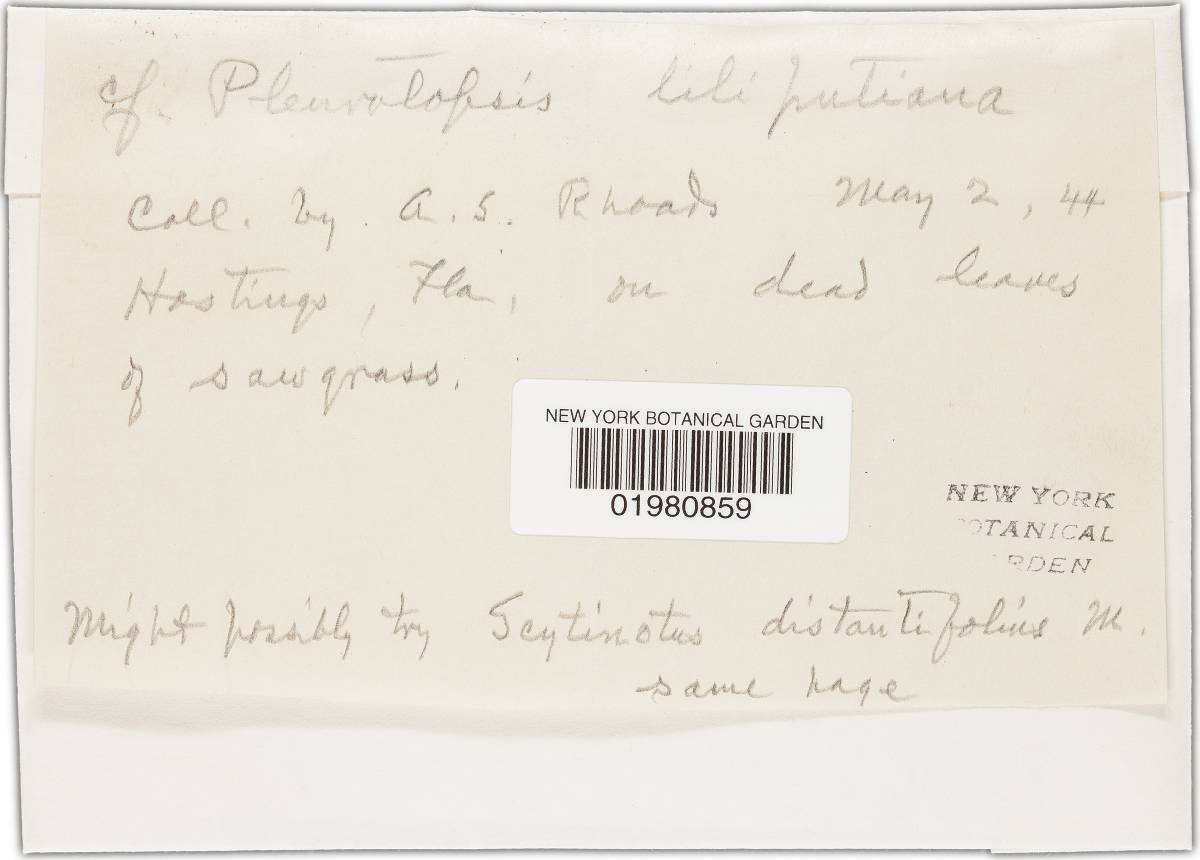 cf. Pleurotopsis liliputiana
Coll. by. A. S. Rhoads May 2, 44
Hastings, Fla, on dead leaves
of sawgrass.
NEW YORK BOTANICAL GARDEN
01980859
NEW YORK
BOTANICAL
GARDEN
Might possibly try Scytinotus distantifolius M.
same page